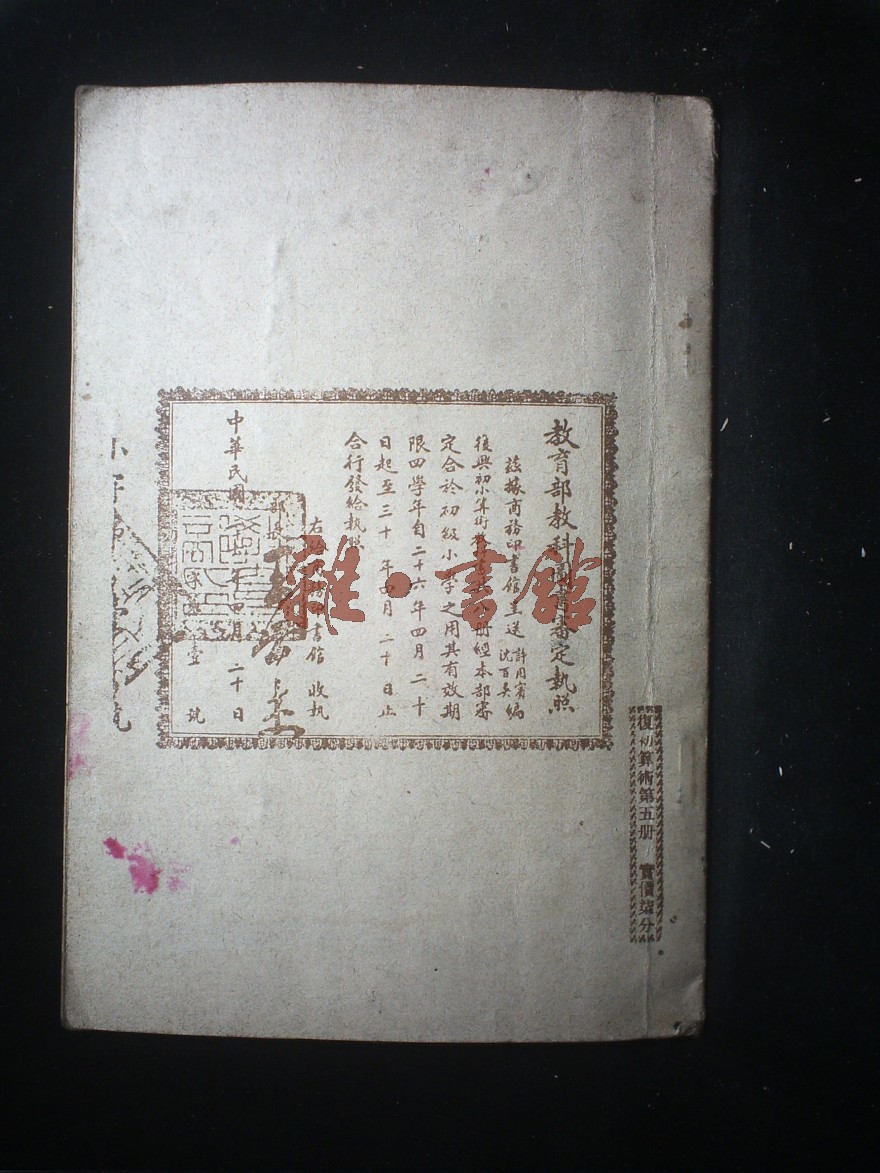 教育部教科圖書審定執照
茲據商務印書館呈送許用賓沈百英編
復興初小算術教 冊經本部審
定合於初級小學之用其有效期
限四學年自二十六年四月二十
日起至三十年四月二十日止
合行發給執照
右給 書館收執
部長
中華民國 年四月二十日
壹號
復初算術第五册 實價柒分
雜·書館